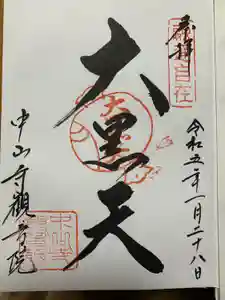 奉拝
福自在
令和五年一月二十八日
大黒天
中山寺觀音院